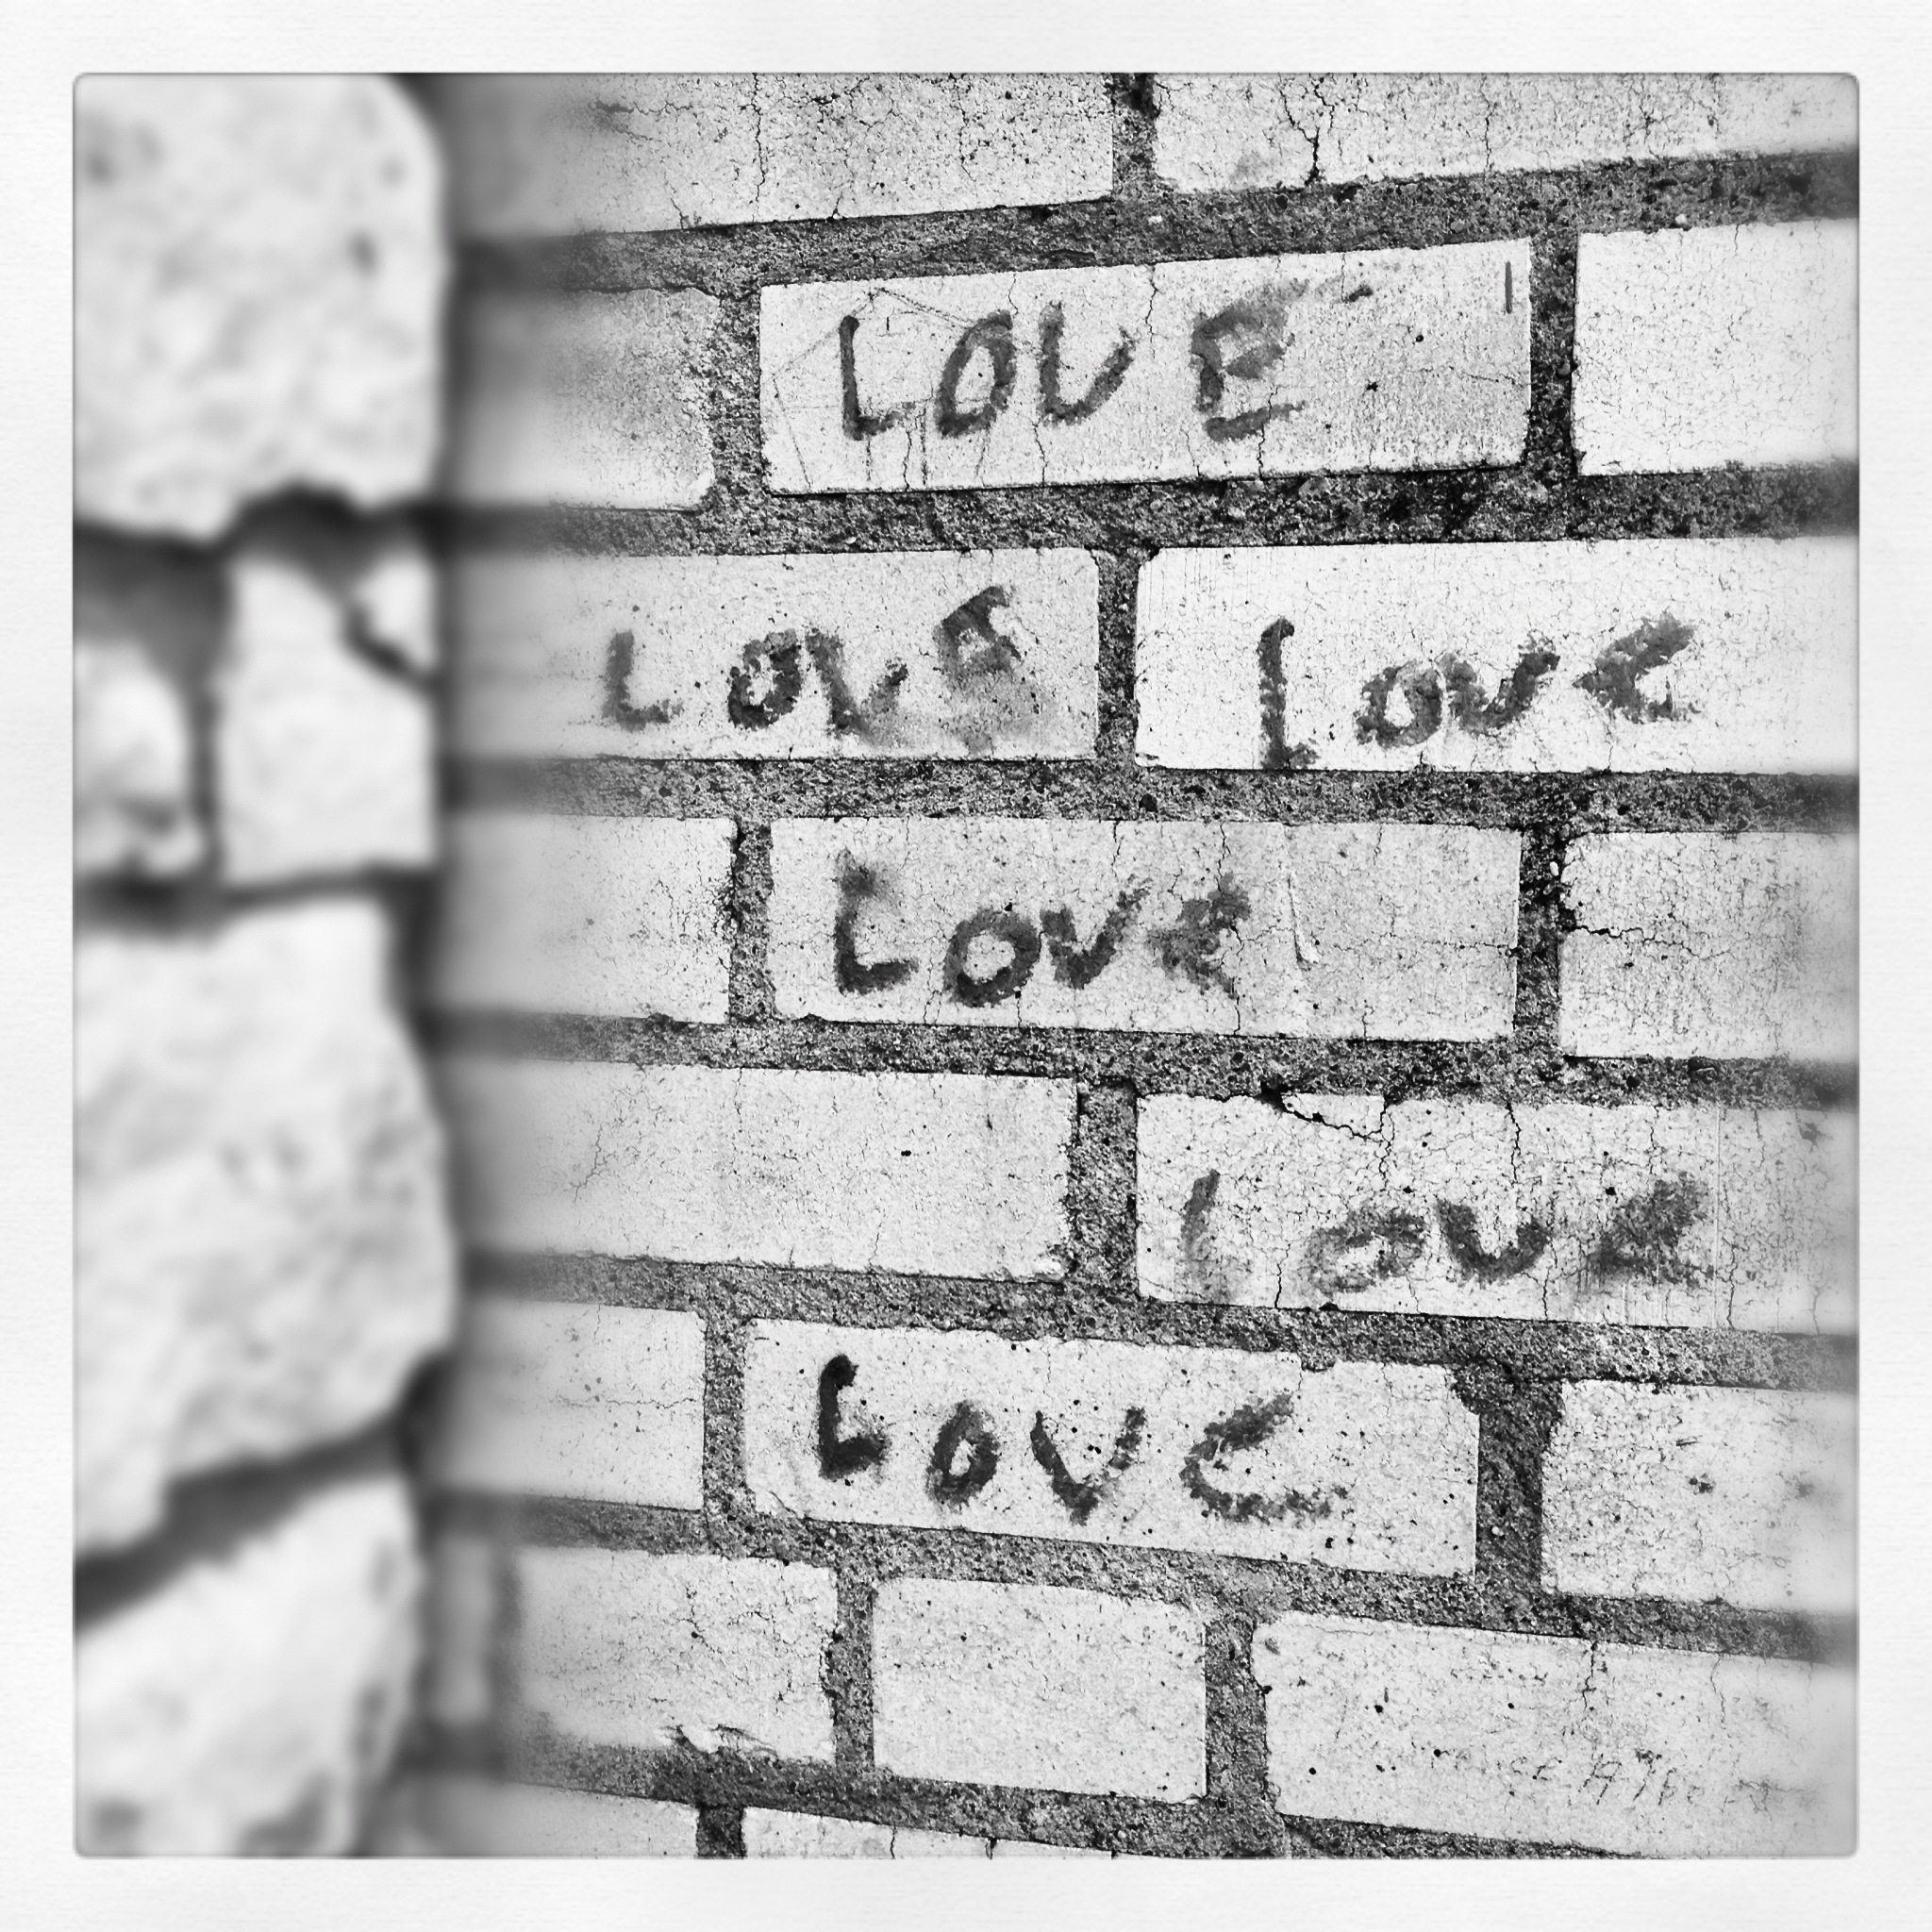 LOVE
LOVE Love
Love
Love
LOVE